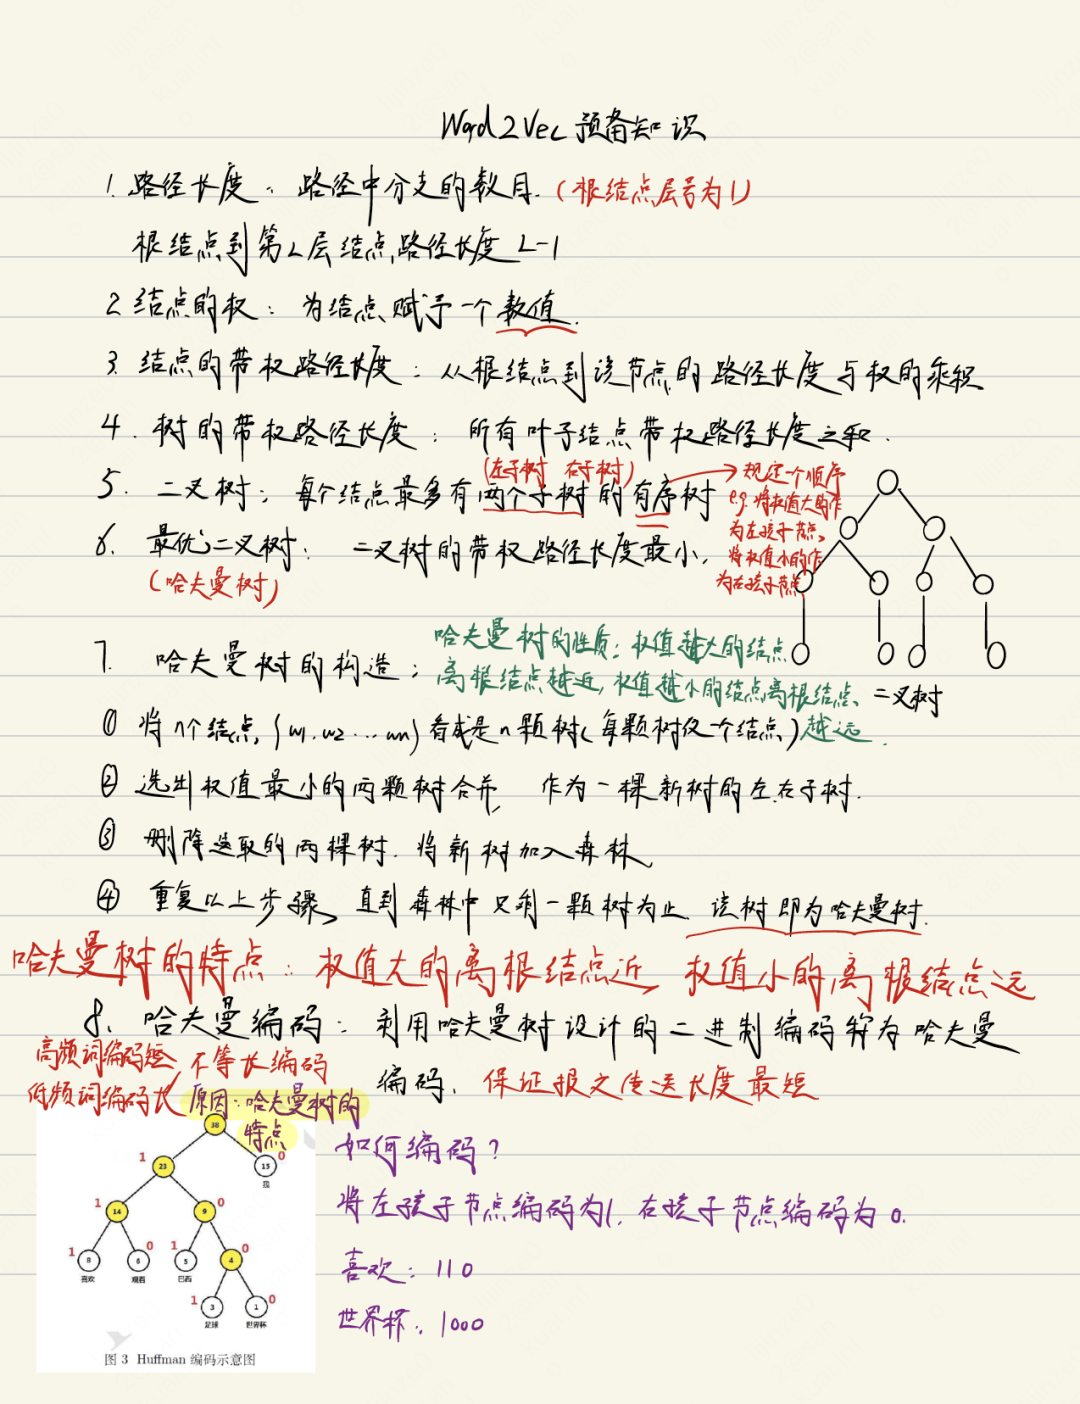 Word2Vec 预备知识
1. 路径长度：路径中分支的数目.（根结点层号为1）
根结点到第L层结点,路径长度 L-1
2 结点的权：为结点赋予一个数值.
3. 结点的带权路径长度：从根结点到该节点的路径长度与权的乘积
4. 树的带权路径长度：所有叶子结点带权路径长度之和.
(左子树 右子树)
5. 二叉树：每个结点最多有两个子树的有序树
→规定个顺序
e.g. 将权值大的作
为左孩子节点,
将权值小的作
为右孩子节点
6. 最优二叉树：二叉树的带权路径长度最小,
(哈夫曼树)
二叉树
7. 哈夫曼树的构造：
哈夫曼树的性质：权值越大的结点
离根结点越近,权值越小的结点离根结点
越远.
① 将n个结点,{w1,w2...wn}看成是n颗树(每颗树仅一个结点)
② 选出权值最小的两颗树合并,作为一棵新树的左.右子树.
③ 删除选取的两棵树.将新树加入森林,
④ 重复以上步骤,直到森林中只剩一颗树为止.该树即为哈夫曼树.
哈夫曼树的特点：权值大的离根结点近,权值小的离根结点远
8. 哈夫曼编码：利用哈夫曼树设计的二进制编码称为哈夫曼
编码, 保证报文传送长度最短
高频词编码短, 不等长编码
低频词编码长, 原因：哈夫曼树的
特点
38
1 23 15 0
我
1 14 9 0
1 8 6 0 1 5 4 0
喜欢 观看 巴西
1 3 1 0
足球 世界杯
图 3 Huffman 编码示意图
如何编码？
将左孩子节点编码为1,右孩子节点编码为0.
喜欢：110
世界杯：1000